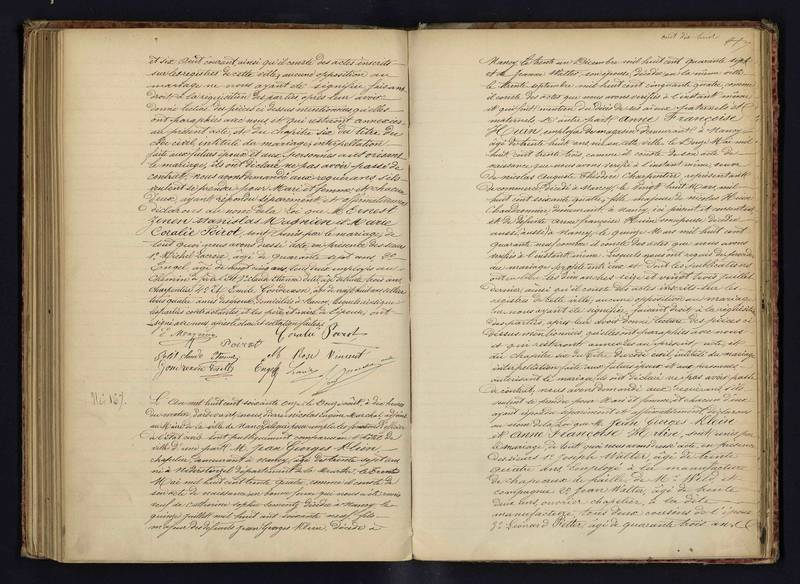 et six août courant ainsi qu'il conste des actes inscrits
sur les registres de cette ville, aucune opposition au
mariage ne nous ayant été signifiée faisant
droit à la réquisition des parties après leur avoir
donné lecture des pièces ci dessus mentionnées qu'elles
ont paraphées avec nous et qui resteront annexées
au présent acte, et du chapitre six du titre du
Code civil, intitulé du mariage, interpellation
faite aux futurs époux et aux personnes autorisant
le mariage, ils ont déclaré ne pas avoir passé de
contrat, nous avons demandé aux requérans s'ils
veulent se prendre pour Mari et femme, et chacun
d'eux ayant répondu séparément et affirmativement
déclarons au nom de la loi que M. Ernest
Stanislas et Marie
Coralie Poirot, sont unis par le mariage, de
tout quoi nous avons dressé acte en présence des sieurs
1° Michel âgé de quarante sept ans, 2°
Engel âgé de vingt cinq ans, tous deux employés au
chemin de fer de l'Est 3°
charpentier 4° et Emile
tous quatre amis des époux, domiciliés à Nancy, lesquels ainsi que
les parties contractantes et les père et mère de l'épouse, ont
signé avec nous après lecture
Coralie Poirot
Poirot
M Rose Vincent
Engel
N° 167.
L'An mil huit cent soixante onze, le Douze août, à dix heures
du matin, devant nous, Pierre Nicolas Eugène Marchal, adjoint
au Maire de la ville de Nancy
de l'Etat civil sont publiquement comparus en l'hôtel de
ville d'une part M. Jean Georges Klein
chapelier, demeurant à Nancy, âgé de trente sept ans
né à département de la Meurthe, le trente
Mai mil huit cent trente quatre, comme il conste de
son acte de naissance en bonne forme que nous a été remis
veuf de Catherine Sophie décédée à Nancy le
quinze juillet mil huit cent soixante neuf, fils
majeur des défunts Jean Georges Klein, décédé à
août dix huit
Nancy le trente un Décembre mil huit cent quarante sept
et de Jeanne Walter, son épouse, décédée en la même ville
le trente septembre mil huit cent cinquante quatre, comme
il conste des actes que nous avons vérifiés à l'instant même,
et qui font mention du décès de ses aïeux paternels et
maternels D'autre part Anne Françoise
Huin, employée de magasin demeurant à Nancy
âgée de trente huit ans née en cette ville, le Douze Mai mil
huit cent trente trois, comme il conste de son acte de
naissance que nous avons vérifié à l'instant même, veuve
de Nicolas Auguste Théodore Charpentier, représentant
de commerce décédé à Nancy, le vingt huit Mars mil
huit cent soixante quatre, fille majeure de Nicolas Huin
demeurant à Nancy, ici présent et consentant
et de défunte Anne Françoise son épouse décédée
aussi à Nancy, le quinze Mars mil huit cent
quarante neuf, comme il conste des actes que nous avons
vérifiés à l'instant même. Lesquels nous ont requis de procéder
au mariage projeté entre eux et dont les publications
ont eu lieu les dimanches seize et vingt trois juillet
dernier, ainsi qu'il conste des actes inscrits sur les
registres de cette ville, aucune opposition au mariage
ne nous ayant été signifiée, faisant droit à la réquisition
des parties, après leur avoir donné lecture des pièces ci
dessus mentionnées qu'elles ont paraphées avec nous
et qui resteront annexées au présent acte, et
du chapitre six du titre du code civil, intitulé du mariage
interpellation faite aux futurs époux et aux personnes
autorisant le mariage, ils ont déclaré ne pas avoir passé
de contrat, nous avons demandé aux requérans s'ils
veulent se prendre pour Mari et femme, et chacun d'eux
ayant répondu séparément et affirmativement déclarons
au nom de la loi que M. Jean Georges Klein
et Anne Françoise Huin, sont unis par
le mariage de tout quoi nous avons dressé acte, en présence
des sieurs 1° Joseph Walter, âgé de trente
quatre ans employé à la manufacture
de chapeaux de paille de M.
compagnie 2° Jean Walter, âgé de trente
deux ans, ouvrier chapelier à la dite
manufacture, tous deux cousins de l'époux
3° Léonard âgé de quarante trois ans